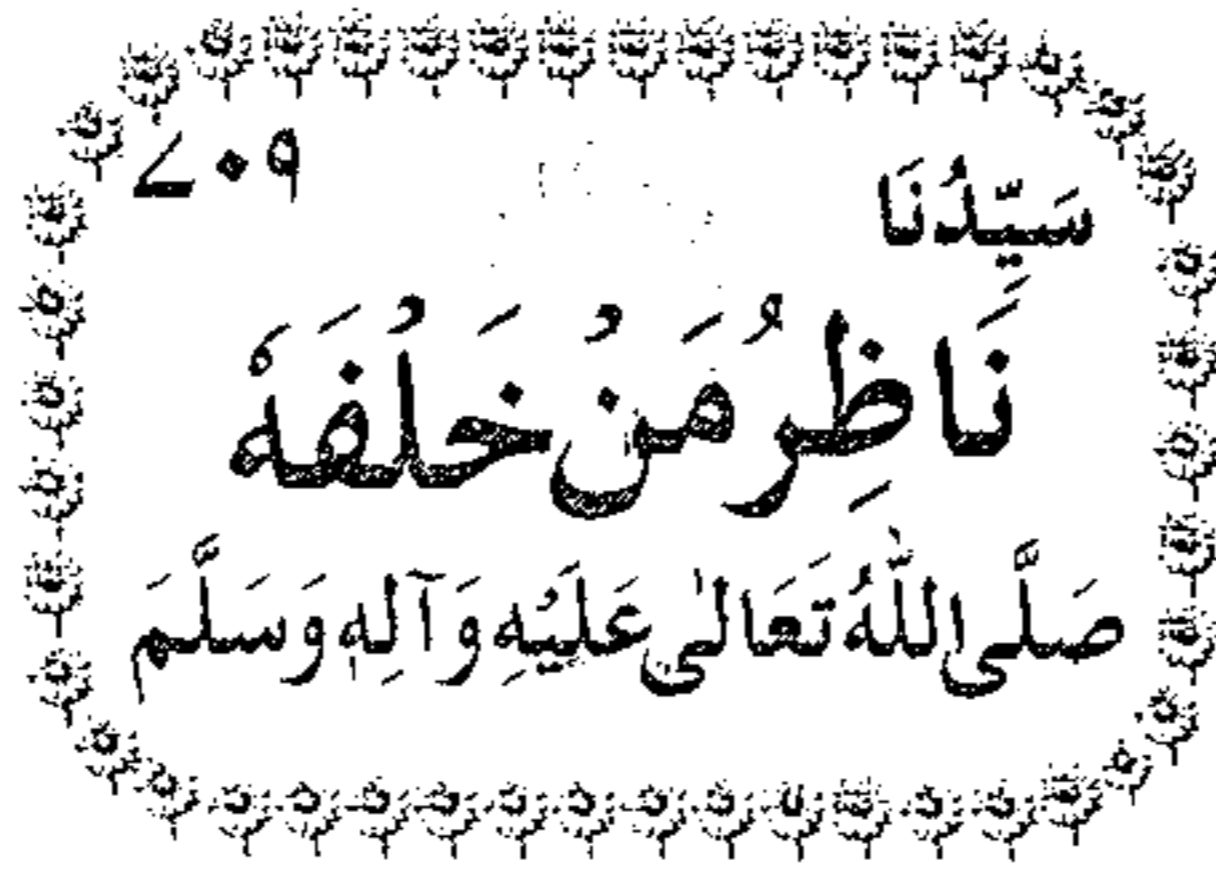 سَيِّدُنَا ۷۰۹
نَاظِرُ مَنْ خَلْفَهٗ
صَلَّى اللّٰهُ تَعَالٰى عَلَيْهِ وَآلِهٖ وَسَلَّمَ